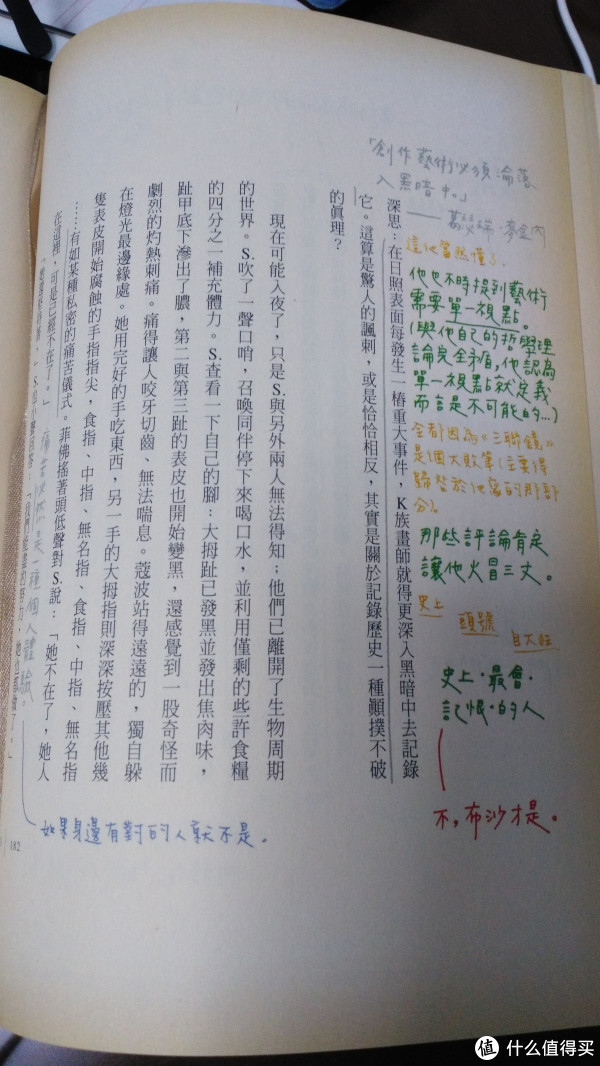 「創作藝術必須淪落
入黑暗中。」
——葛·麥金內
這他當然懂了。
他也不時提到藝術
需要單一視點。
(與他自己的哲學理
論完全矛盾，他認為
單一視點就定義
而言是不可能的…)
全都因為《三聯鏡》
是個大敗筆(主要得
歸咎於他寫的那部
分)。
那些評論肯定
讓他火冒三丈。
史上
頭號
自大狂
史上·最會·
記恨·的人
不，布沙才是。
深思：在日照表面每發生一樁重大事件，K族畫師就得更深入黑暗中去記錄
它。這算是驚人的諷刺，或是恰恰相反，其實是關於記錄歷史一種顛撲不破
的真理？
現在可能入夜了，只是S.與另外兩人無法得知；他們已離開了生物周期
的世界。S.吹了一聲口哨，召喚同伴停下來喝口水，並利用僅剩的些許食糧
的四分之一補充體力。S.查看一下自己的腳：大拇趾已發黑並發出焦肉味，
趾甲底下滲出了膿，第二與第三趾的表皮也開始變黑，還感覺到一股奇怪而
劇烈的灼熱刺痛。痛得讓人咬牙切齒、無法喘息。蔻波站得遠遠的，獨自躲
在燈光最邊緣處。她用完好的手吃東西，另一手的大拇指則深深按壓其他幾
隻表皮開始腐蝕的手指指尖，食指、中指、無名指、食指、中指、無名指
……有如某種私密的痛苦儀式。菲佛搖著頭低聲對S.說：「她不在了，她人
在這裡，可是已經不在了。」
痛苦必然是一種個人體驗。
如果身邊有對的人就不是。
182
值 什么值得买